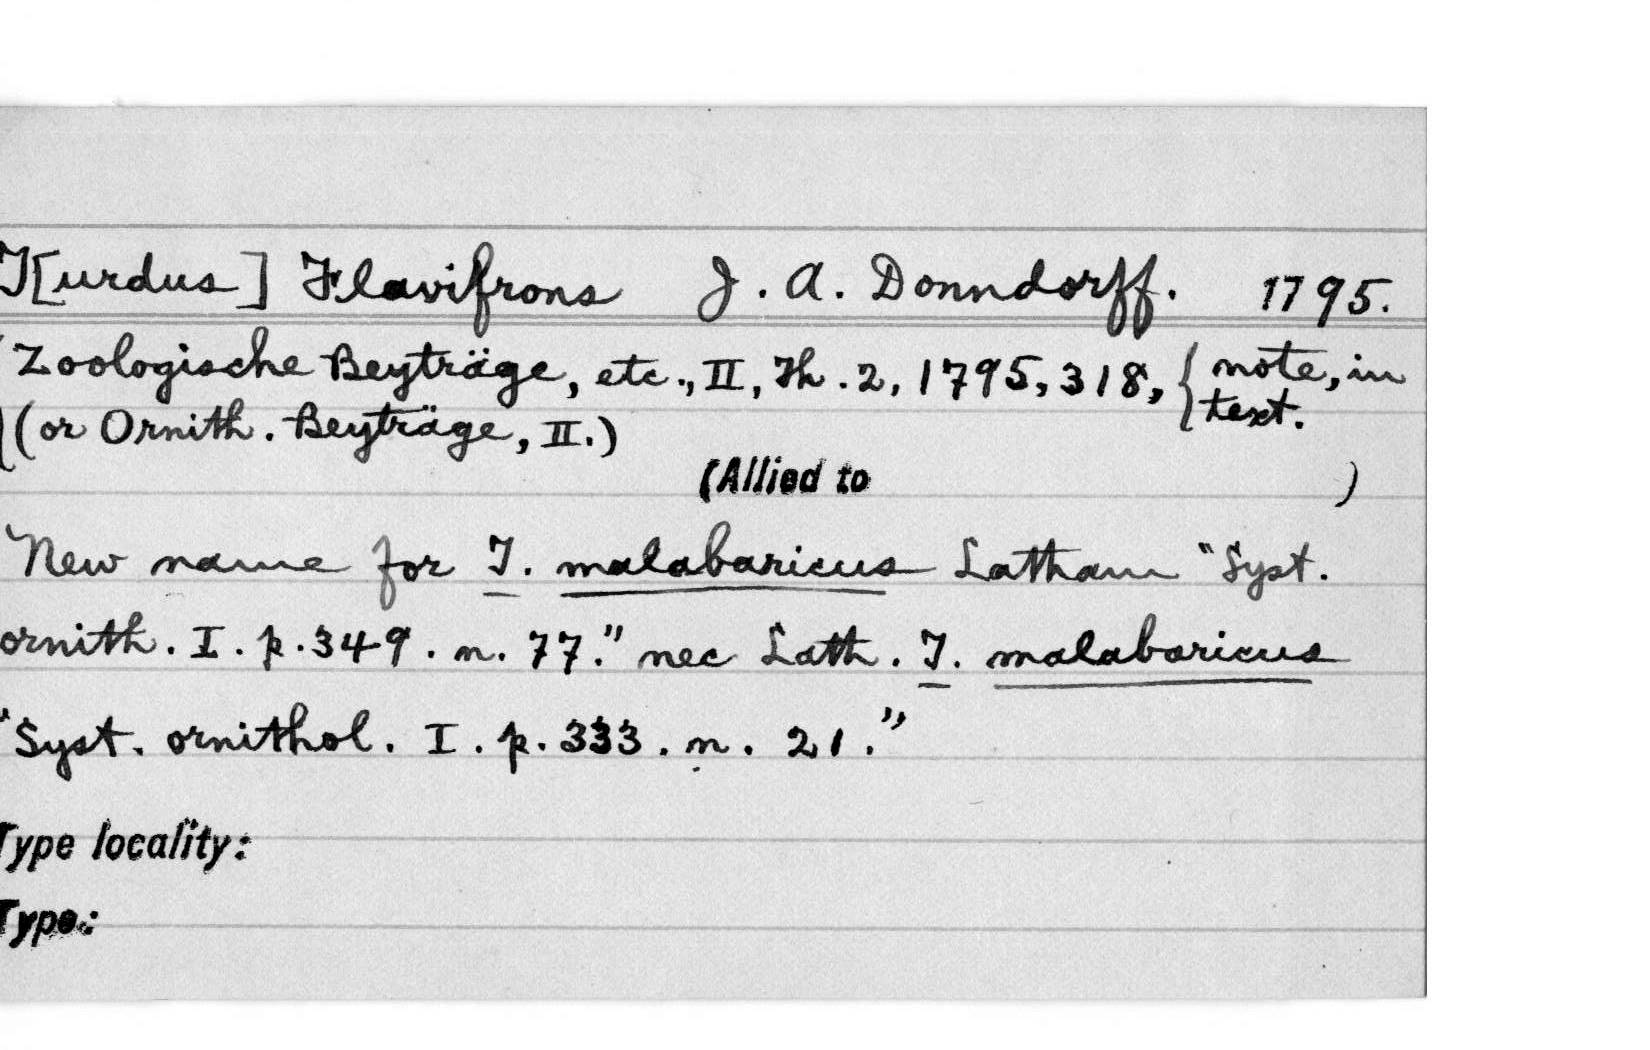 T[urdus] Flavifrons J. A. Donndorff. 1795.
Zoologische Beyträge, etc., II, Th. 2, 1795, 318, { note, in
(or Ornith. Beyträge, II.) text.
(Allied to )
New name for T. malabaricus Latham "Syst.
ornith. I. p. 349. n. 77." nec Lath. T. malabaricus
"Syst. ornithol. I. p. 333. n. 21."
Type locality:
Type: